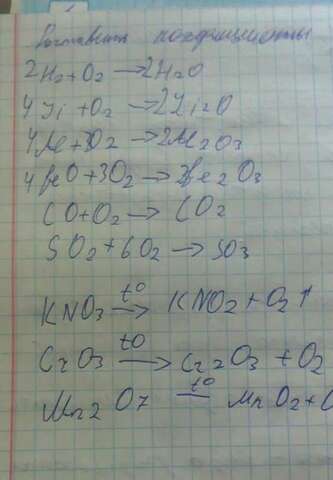 Расставить коэффициенты
2H2+O2→2H2O
4Li+O2→2Li2O
4Al+3O2→2Al2O3
4FeO+3O2→2Fe2O3
CO+O2→CO2
SO2+6O2→SO3
KNO3 t0→ KNO2+O2↑
Cr2O3 t0→ Cr2O3+O2
Mn2O7 t0— MnO2+O